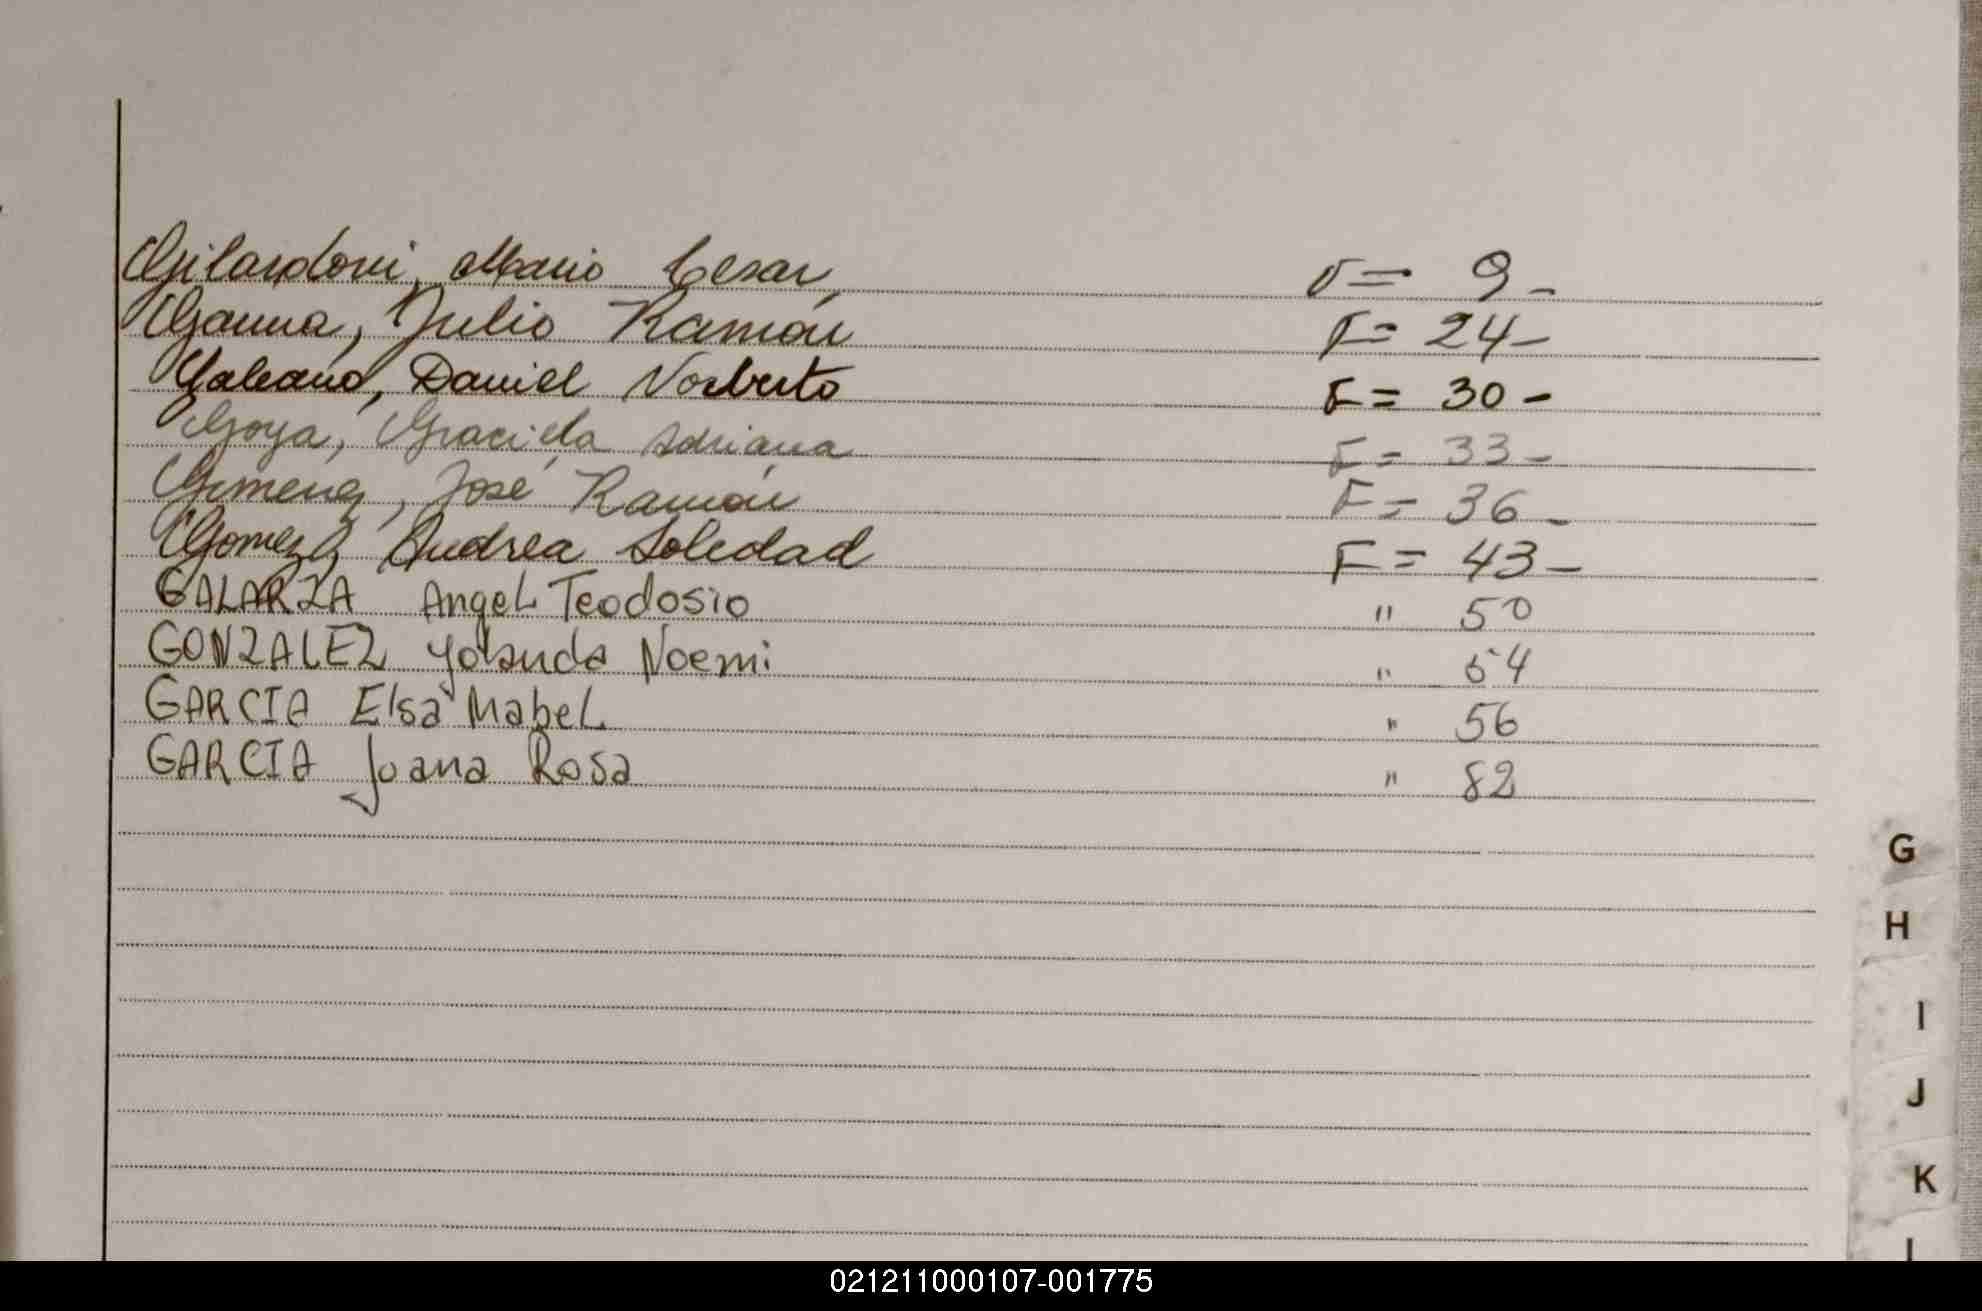 Gilardoni, Mario Cesar, F= 9-
Gauna, Julio Ramón F= 24-
Galeano, Daniel Norberto F= 30-
Goya, Graciela Adriana F= 33-
Gimenez, José Ramón F= 36-
Gomez, Andrea Soledad F= 43-
GALARZA Angel Teodosio " 50
GONZALEZ Yolanda Noemi " 54
GARCIA Elsa Mabel " 56
GARCIA Juana Rosa " 82
G
H
I
J
K
L
021211000107-001775